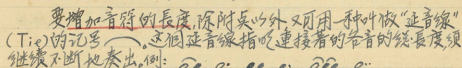 要增加音符的長度,除附点以外,又可用一种叫做"延音線"
(Tie)的记号⌒。这個延音線指吔連接著的各音的総長度須
继續不断地奏出。例: